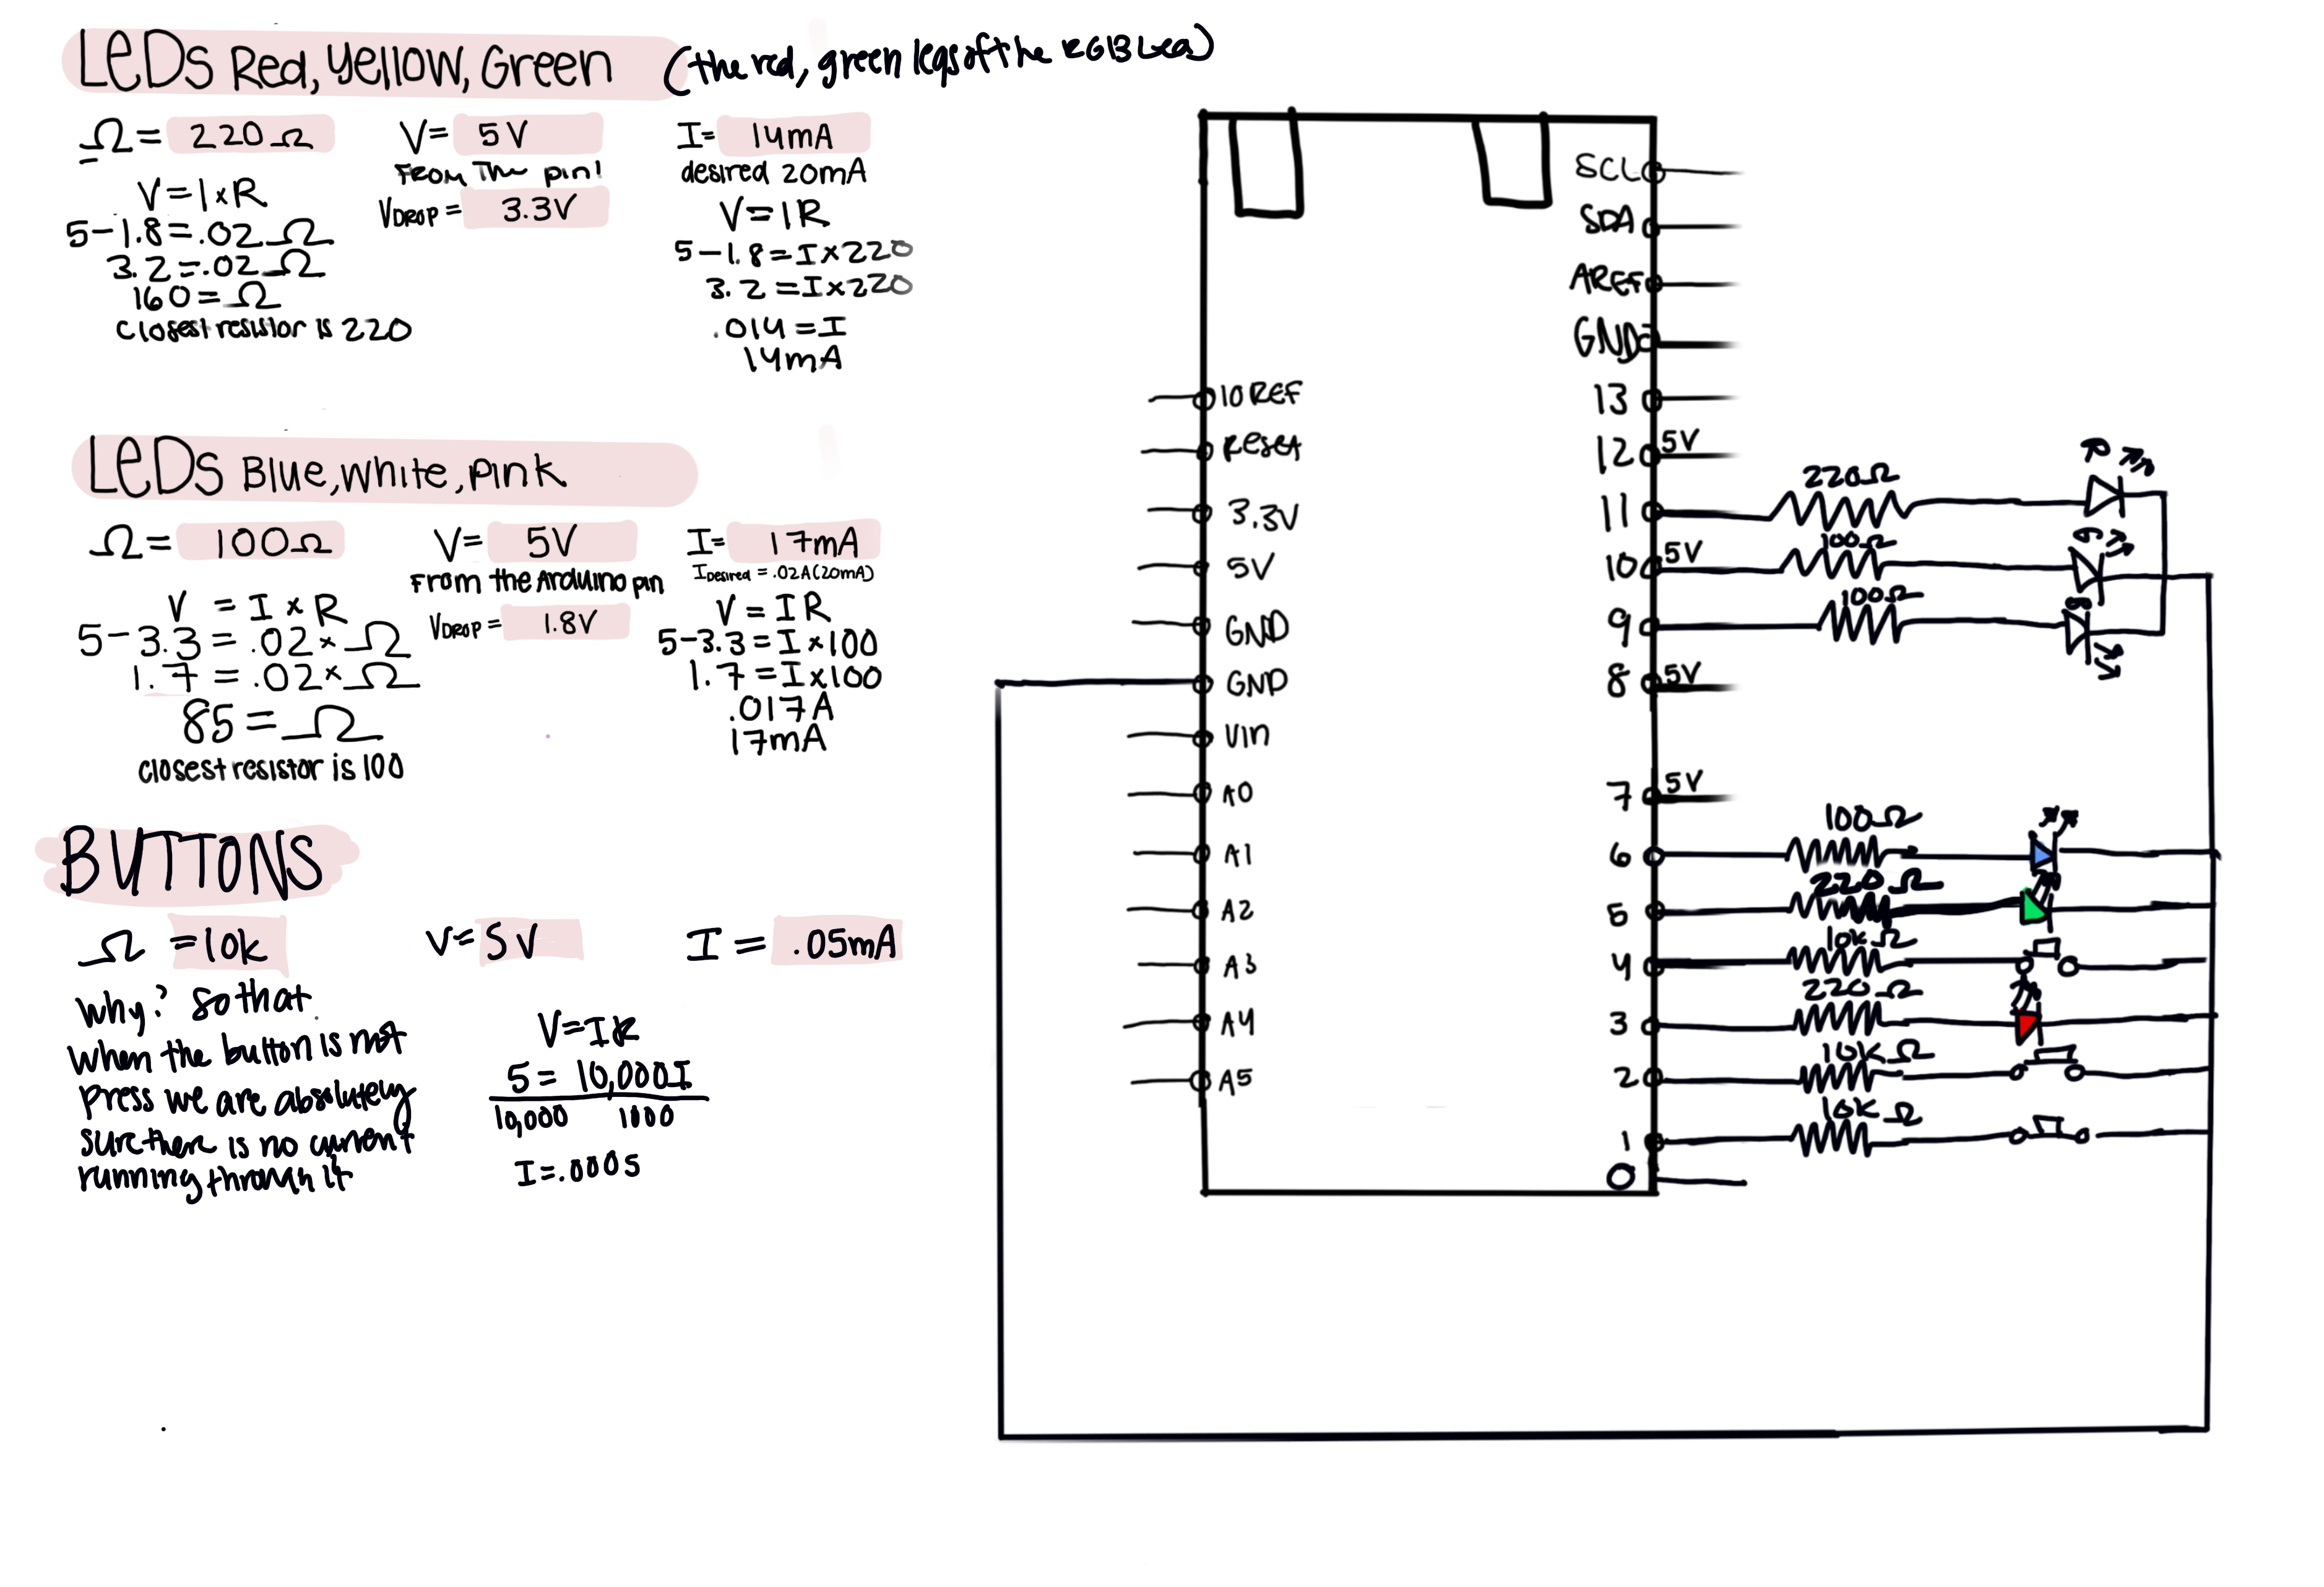 LEDs Red, Yellow, Green (the red, green legs of the RGB Led)
Ω = 220Ω
V = I x R
5-1.8 = .02 Ω
3.2 = .02 Ω
160 = Ω
closest resistor is 220
V = 5V
From The pin!
VDROP = 3.3V
I = 14mA
desired 20mA
V = IR
5-1.8 = I x 220
3.2 = I x 220
.014 = I
14mA
LEDs Blue, white, pink
Ω = 100Ω
V = I x R
5-3.3 = .02 x Ω
1.7 = .02 x Ω
85 = Ω
closest resistor is 100
V = 5V
From the Arduino pin
VDROP = 1.8V
I = 17mA
IDesired = .02A (20mA)
V = IR
5-3.3 = I x 100
1.7 = I x 100
.017A
17mA
BUTTONS
Ω = 10k
why? so that
when the button is not
press we are absolutely
sure there is no current
running through it
V = 5V
V = IR
5 = 10,000I
10,000 1000
I = .0005
I = .05mA
IOREF
RESET
3.3V
5V
GND
GND
Vin
A0
A1
A2
A3
A4
A5
SCL
SDA
AREF
GND
13
12 5V
11 220Ω
10 5V 100Ω
9 100Ω
8 5V
7 5V
6 100Ω
5 220Ω
4 10kΩ
3 220Ω
2 10kΩ
1 10kΩ
0